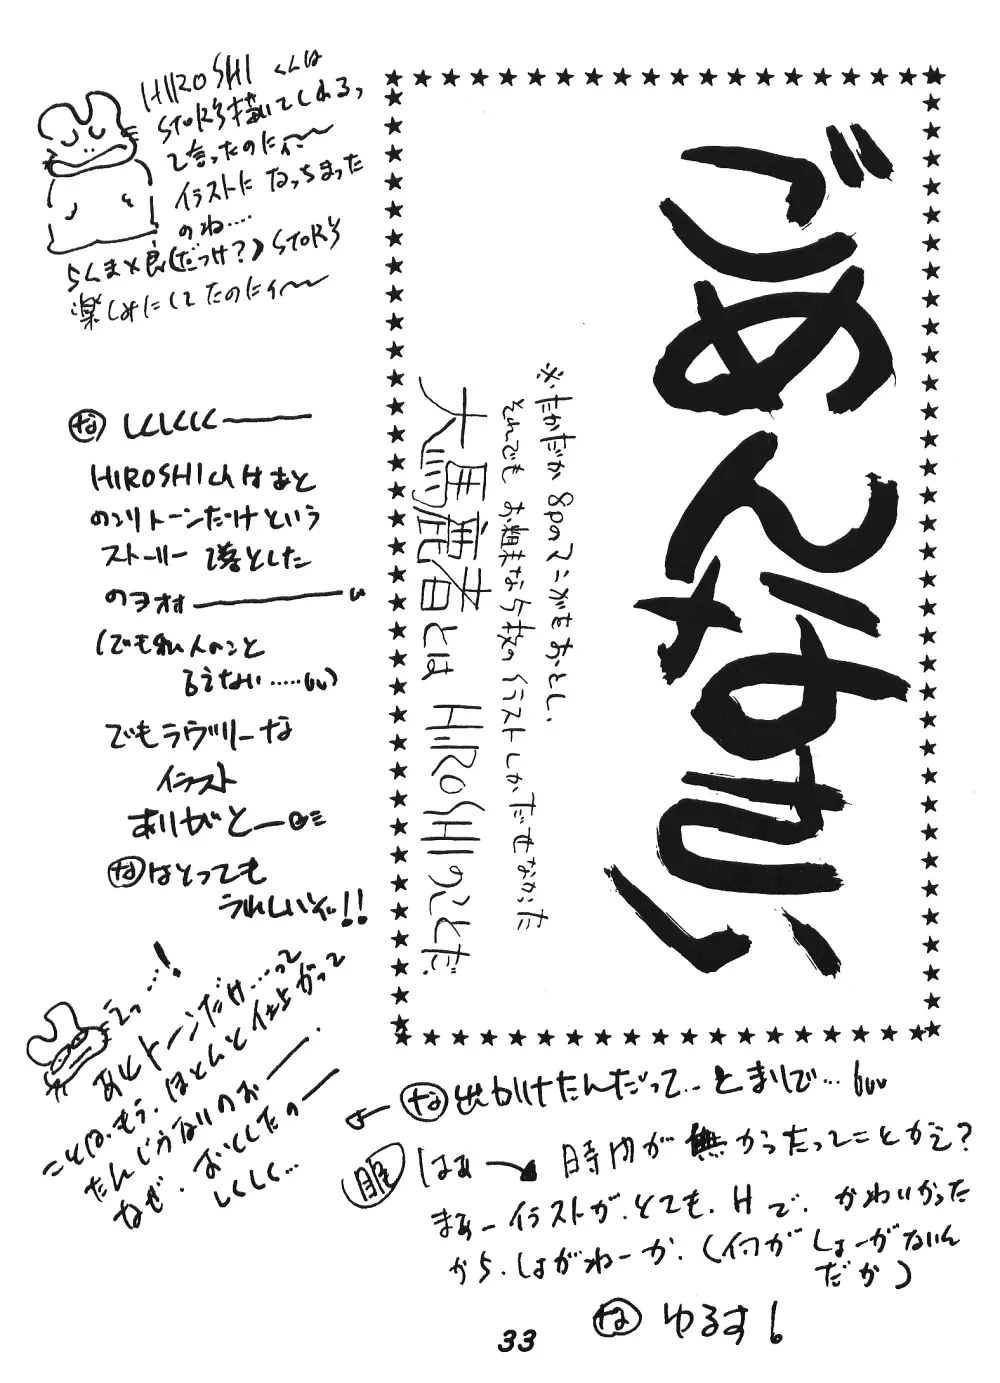 HIROSHIくんは
STORY描いてくれる、
て言ったのにィ〜〜
イラストに なっちまった
のね‥‥
らんま×良(だっけ?)STORY
楽しみにしてたのにィ〜〜
ごめんなさい
※・たかだか8pのマンガをおとし、
それでも お粗末な5枚のイラストしかだせなかった
大馬鹿者とは HIROSHIのことだ
な しくしくしく――
HIROSHIくんはあと
のこりトーンだけという
ストーリー で落とした
のヲオォ――
(でも私、人のこと
言えない……)
でもラヴリーな
イラスト
ありがと―
なはとっても
うれしいぞ!!
えっ…!
あとトーンだけ…って
ことは、もう、ほとんど仕上がって
たんじゃないのォ――.
なぜ、おとしたの――
しくしく…
な 出かけたんだって‥とまりで…
服 はぁ 時間が無かったってことかぇ?
まぁーイラストが、とても、Hで、かわいかった
から、しょがねーか、(何がしょーがないん
だか)
な ゆるす!
33